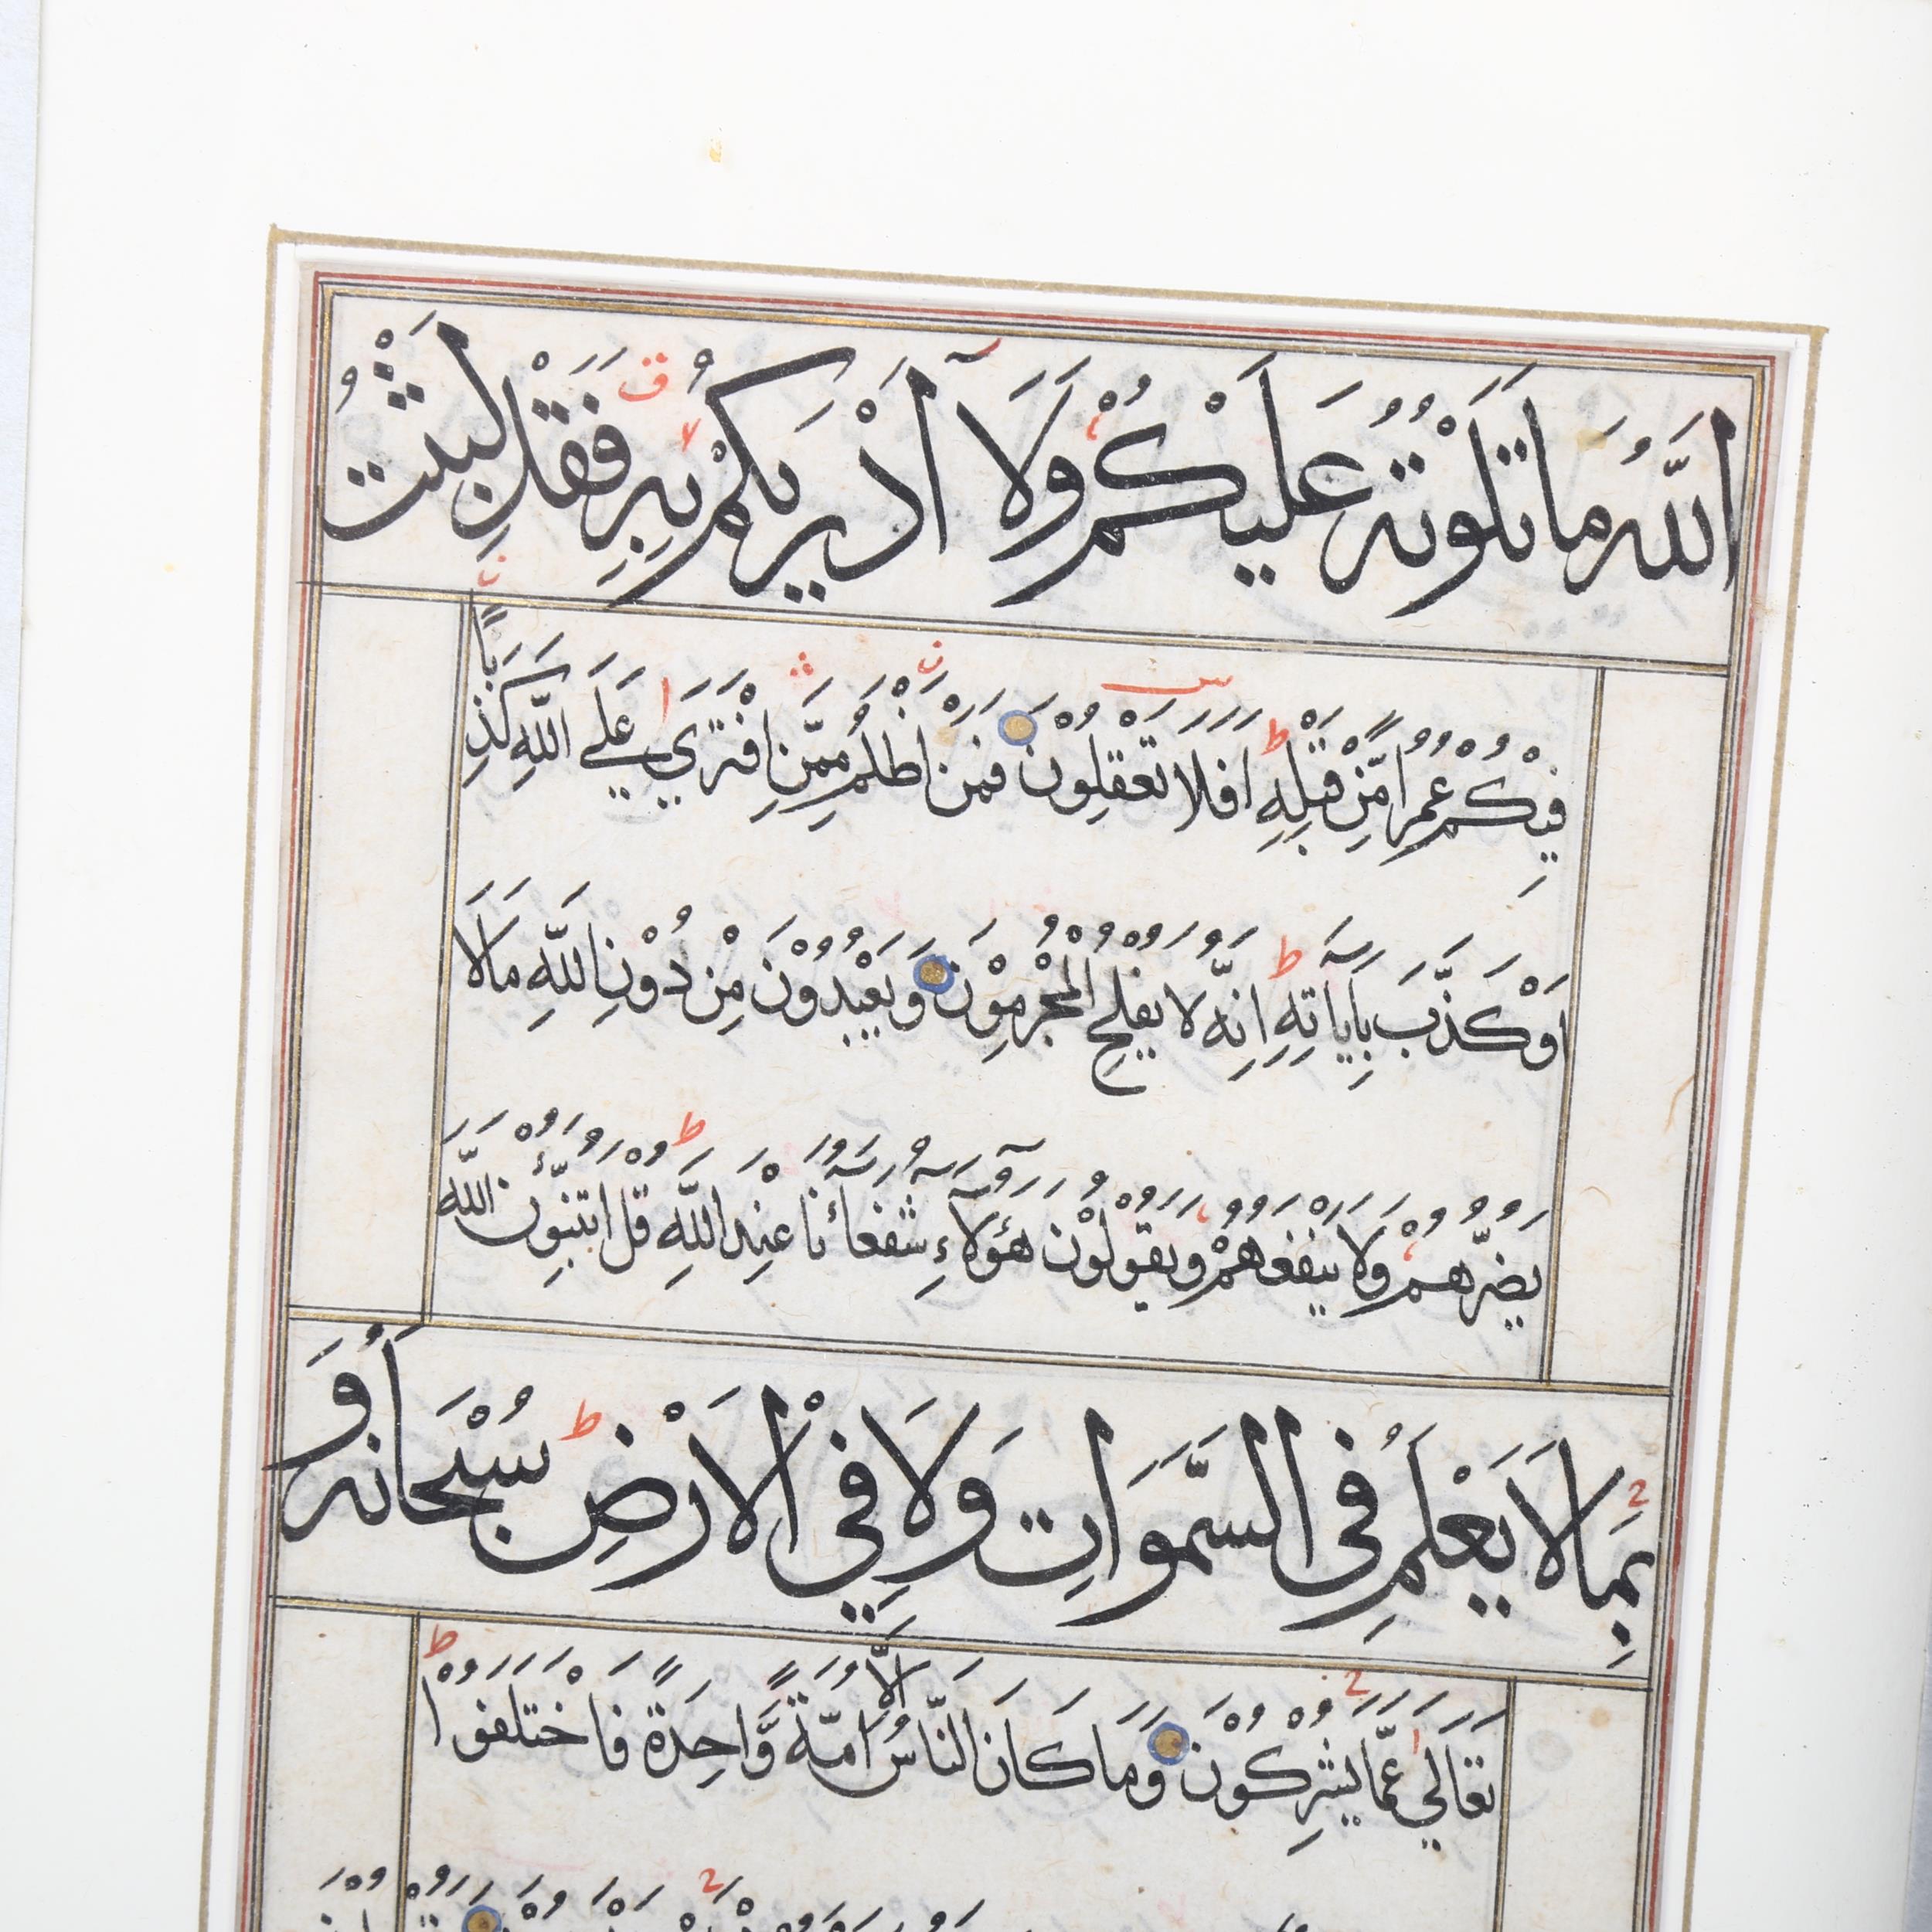 اللَّهُ مَا تَلَوْتُهُ عَلَيْكُمْ وَلَا أَدْرَيكُمْ بِهِ فَقَدْ لَبِثْتُ
فِيكُمْ عُمُرًا مِّنْ قَبْلِهِ اَفَلَا تَعْقِلُوْنَ فَمَنْ اَظْلَمُ مِمَّنِ افْتَرَي عَلَي اللَّهِ كَذِبًا
اَوْ كَذَّبَ بِآيَاتِهِ اِنَّهُ لَا يُفْلِحُ الْمُجْرِمُوْنَ وَيَعْبُدُوْنَ مِنْ دُوْنِ اللَّهِ مَا لَا
يَضُرُّهُمْ وَلَا يَنْفَعُهُمْ وَيَقُوْلُوْنَ هَؤُلَآءِ شُفَعَآئُنَا عِنْدَ اللَّهِ قُلْ اَتُنَبِّئُوْنَ اللَّهَ
بِمَا لَا يَعْلَمُ فِي السَّمَوَاتِ وَلَا فِي الْاَرْضِ سُبْحَانَهُ وَ
تَعَالَي عَمَّا يُشْرِكُوْنَ وَمَا كَانَ النَّاسُ اِلَّا اُمَّةً وَّاحِدَةً فَاخْتَلَفُوْا